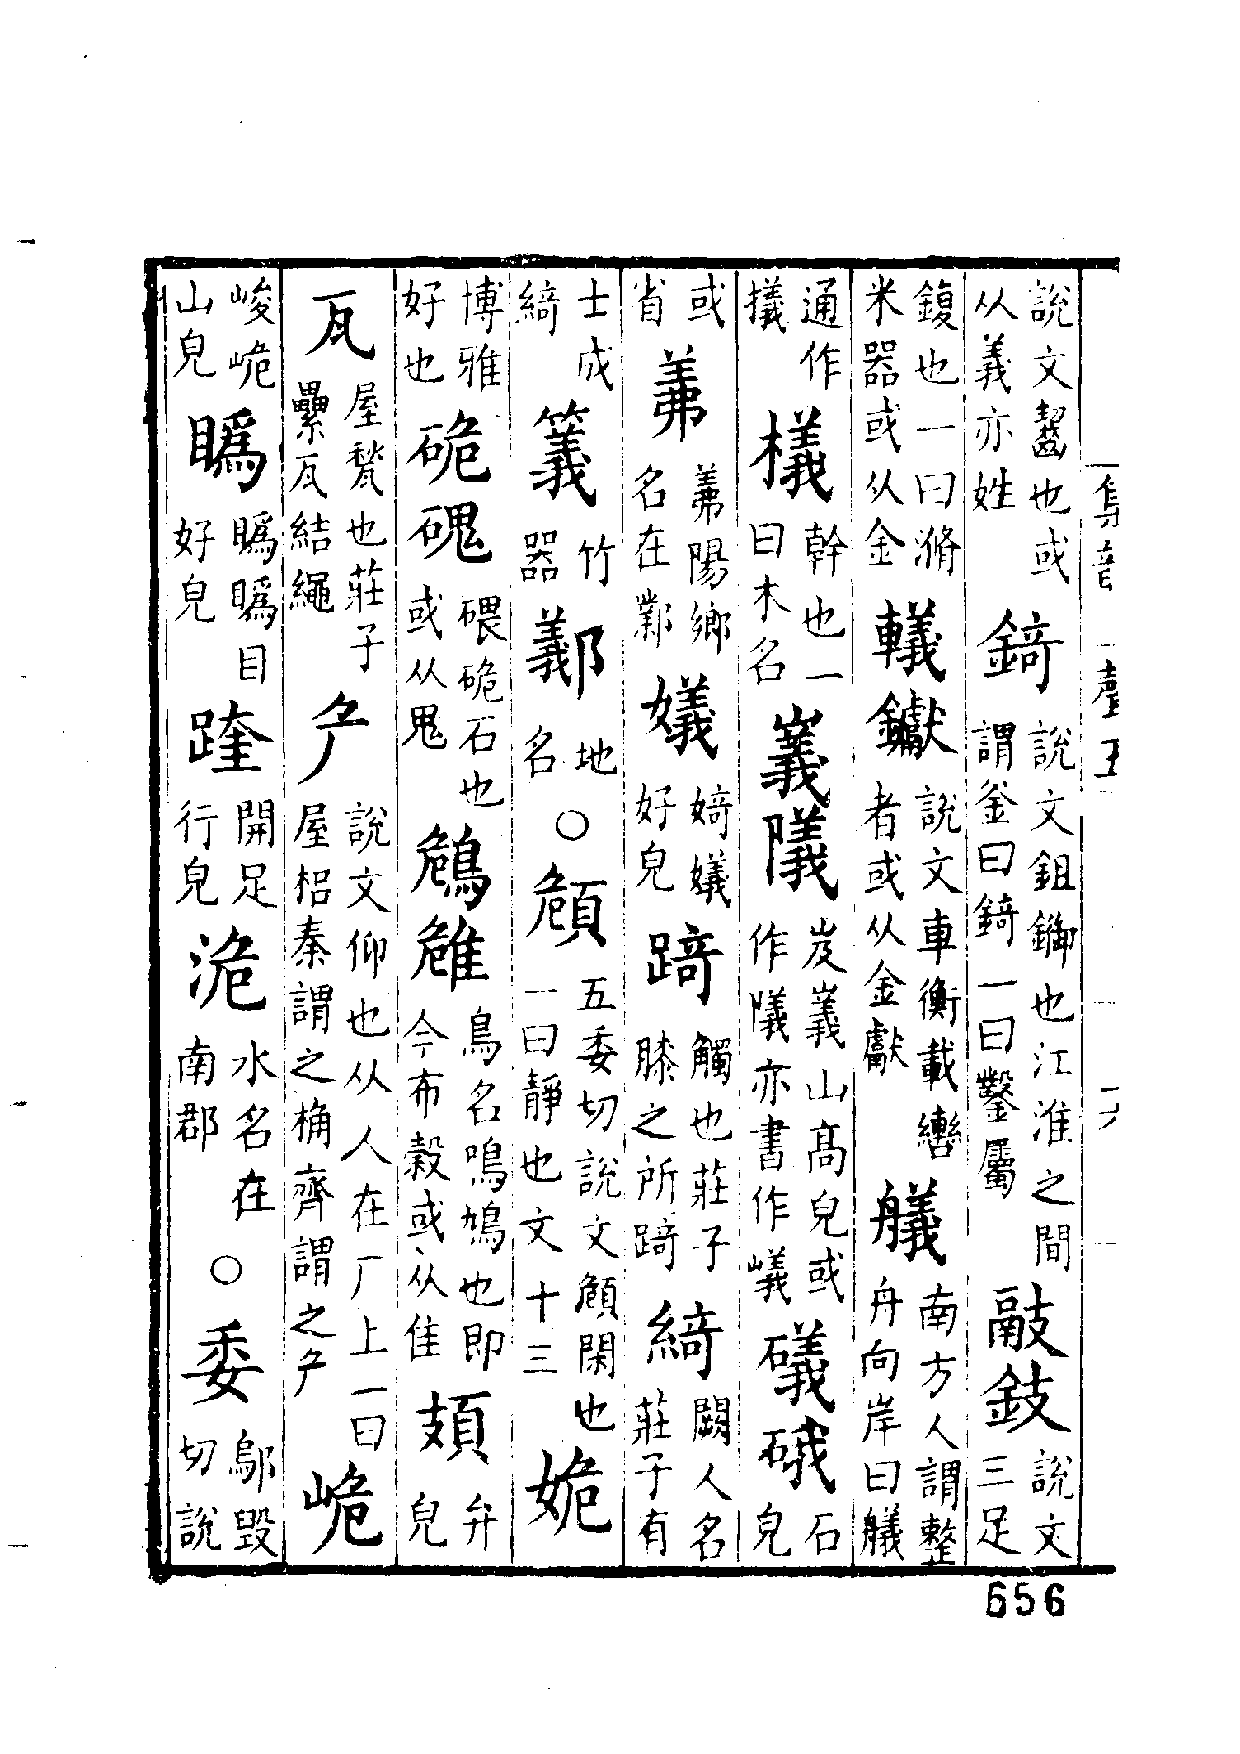 說文齧也或从義亦姓錡說文鉏鋤也江淮之間謂釜曰錡一曰鑿屬䰙䥓說文三足
鍑也一曰滫米器或从金轙钀說文車衡載轡者或从金獻艤南方人謂整舟向岸曰艤
通作檥檥榦也一曰木名嶬隵岌嶬山高皃或作隵亦書作㠖礒硪石皃
或省羛羛陽鄉名在鄴㜫婍㜫好皃踦觸也莊子膝之所踦綺闕人名莊子有
士成綺䉝竹器䣡地名○頠五委切說文頠閑也一曰靜也文十三姽
博雅好也硊磈碨硊石也或从鬼鳸鳥名鳴鳩也即今布穀或从隹頍弁皃
瓦屋甃也莊子纍瓦結繩厃說文仰也从人在厂上一曰屋梠秦謂之桷齊謂之厃峗
峻峗山皃䦱目好皃跬開足行皃洈水名在南郡○委鄔毀切說
集音
聲五
六
656